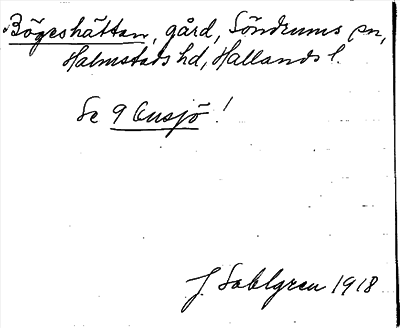 Bögeshättan, gård, Söndrums sn,
Halmstads hd, Hallands l.
Se 9 Gusjö!
J. Sahlgren 1918